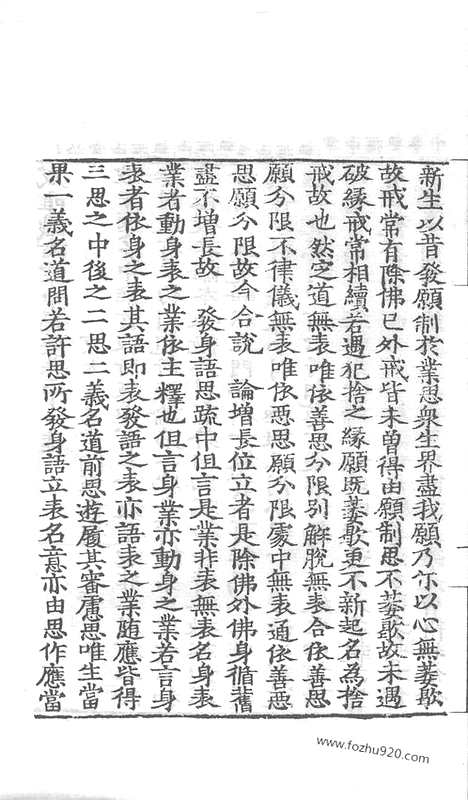 新生以昔發願制於業思衆生界盡我願乃尒以心無萎歇
故戒常有除佛已外戒皆未曾得由願制思不萎歇故未遇
破緣戒常相續若遇犯捨之緣願既萎歇更不新起名為捨
戒故也然定道無表唯依善思分限別解脫無表合依善思
願分限不律儀無表唯依惡思願分限處中無表通依善惡
思願分限故今合說　論增長位立者是除佛外佛身循舊
盡不增長故　發身語思疏中但言是業非表無表名身表
業者動身表之業依主釋也但言身業亦動身之業若言身
表者依身之表其語即表發語之表亦語表之業随應皆得
三思之中後之二思二義名道前思遊履其審慮思唯生當
果一義名道問若許思所發身語立表名意亦由思作應當
www.fozhu920.com